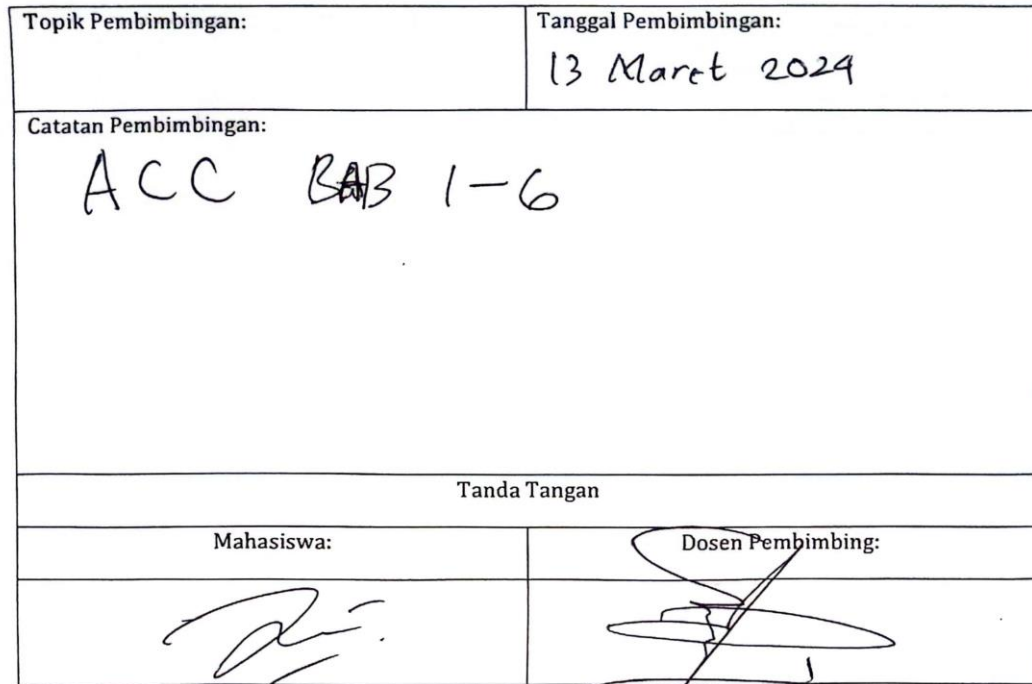 Topik Pembimbingan:
Tanggal Pembimbingan:
13 Maret 2024
Catatan Pembimbingan:
ACC BAB 1-6
Tanda Tangan
Mahasiswa:
Dosen Pembimbing: